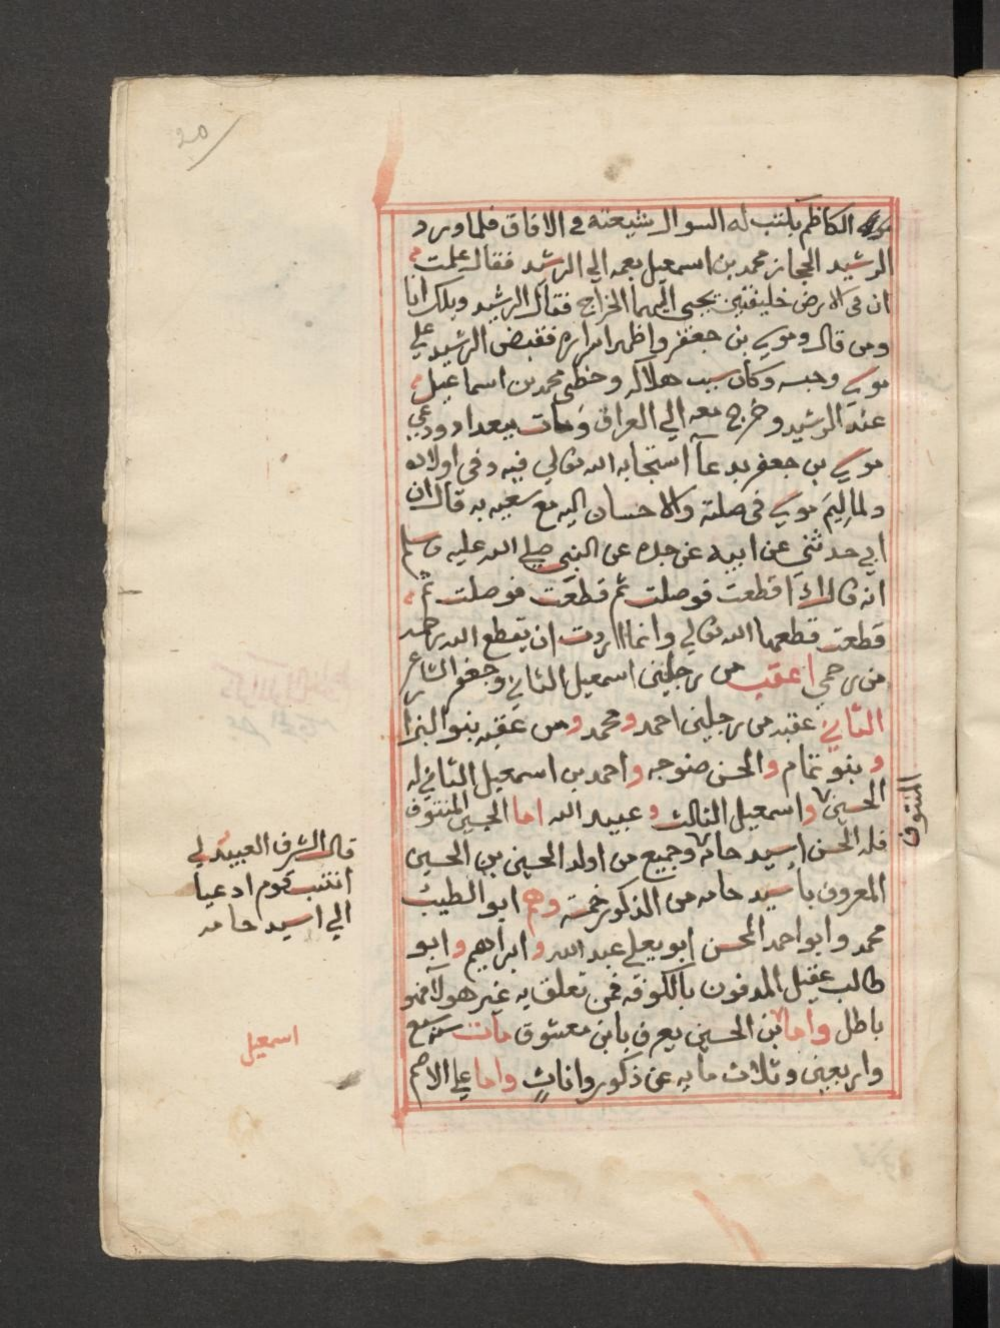 20
موسى الكاظم يكتب له السوال شيعته في الافاق فلما ورد
الرشيد الحجاز محمد بن اسمعيل بعمه الي الرشيد فقال علمت
ان في الارض خليفتين يجبي اليهما الخراج فقال الرشيد ويلك انا
ومن قال وموسى بن جعفر واظهر اسراره فقبض الرشيد علي
موسى وحبسه وكان سبب هلاكه وحظي محمد بن اسماعيل
عند الرشيد وخرج معه الي العراق ومات ببغداد ودعي
موسى بن جعفر بدعآ استجابه الله تعالي فيه وفي اولاده
ولما ليم موسى في صلته والاحسان اليه مع سعيه به قال ان
ابي حدثني عن ابيه عن جده عن النبي صلى الله عليه وسلم
انه قال اذا قطعت فوصلت ثم قطعت فوصلت ثم
قطعت قطعها الله تعالي وانما اردت ان يقطع الله رحمه
من رحمي اعقب من رجلين اسمعيل الثاني وجعفر الشاعر
الثاني عقبه من رجلين احمد ومحمد ومن عقبه بنو البزا
وبنو تمام والحسن صنوجه واحمد بن اسمعيل الثاني له
الحسين واسمعيل الثالث وعبيد الله اما الحسين المنتوف
فله الحسن اسيد حامه وجميع من اولد الحسين بن الحسين
المعروف باسيد حامه من الذكور خمسة وهم ابو الطيب
محمد وابو احمد المحسن ابو يعلي عبد الله وابراهيم وابو
طالب عقيل المدفون بالكوفه فمن تعلق به غير هولآ فهو
باطل واما بن الحسين يعرف بابن معشوق مات سنه سبع
واربعين وثلاث مايه عن ذكور واناث واما علي الاصم
المنتوف
قال الشرف العبيدلي
انتسب قوم ادعيا
الي اسيد حامه
اسمعيل